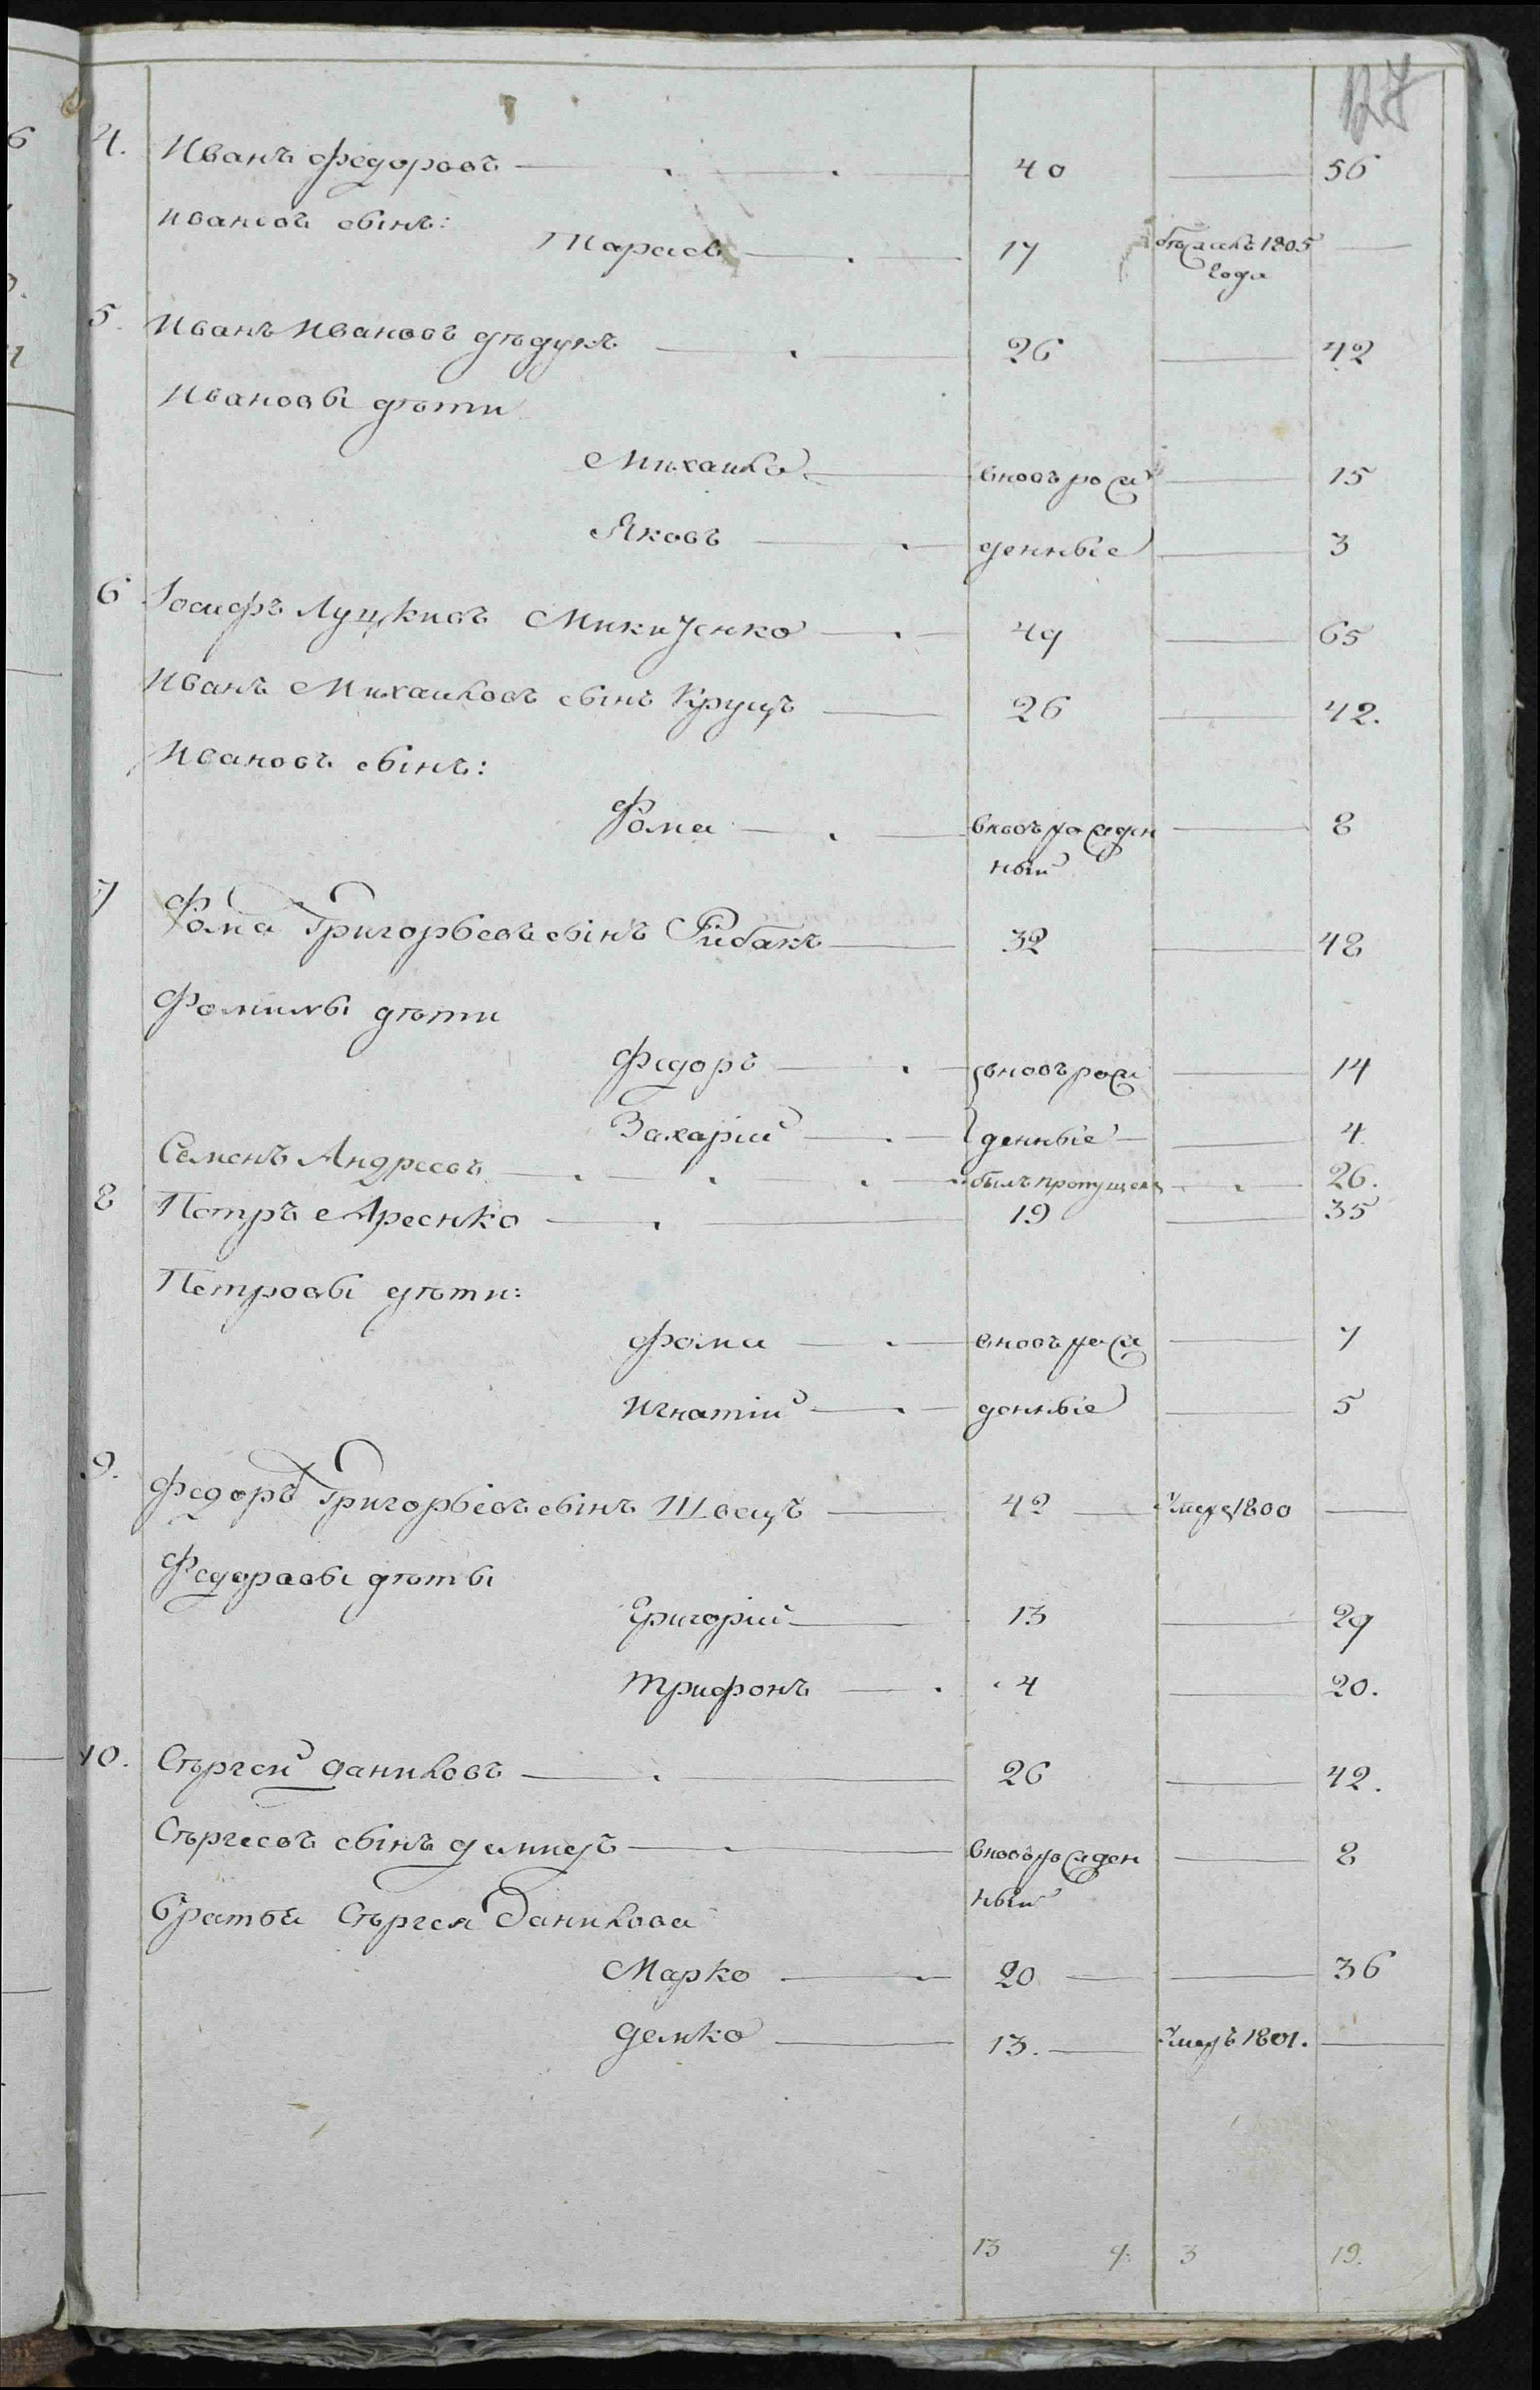 27
4. Иванъ Федоровъ 40 56
Ивановъ сынъ:
Тарасъ 17 1805 года
5. Иванъ Ивановъ дѣдукъ 26 42
Ивановы дѣти
Михаила вновь рож 15
Яковъ денные 3
6 Іосифъ Луцкивъ 49 65
Иванъ Михаиловъ сынъ 26 42.
Ивановъ сынъ:
Фома вновь рожден 8
ный
7 Фома Григорьевъ сынъ Рибакъ 32 48
Фомины дѣти
Федоръ вновь рож 14
Захарій денные 4
Семенъ Андреевъ былъ пропущенъ 26.
8 Петръ Аресенко 19 35
Петровы дѣти:
Фома вновь рож 7
Игнатій денные 5
9. Федоръ Григорьевъ сынъ Швецъ 42 Умеръ 1800
Федоровы дѣты
Григорій 13 29
Трифонъ 4 20.
10. Сѣргей Даниловъ 26 42.
Сѣргеевъ сынъ вновь рожден 8
ный
Братья Сѣргея Данилова
Марко 20 36
Демко 13. Умеръ 1801.
13 4 3 19.